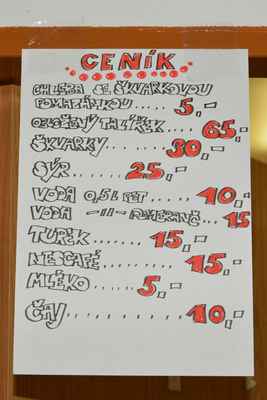 CENÍK
CHLEBA SE ŠKVARKOVOU
POMAZÁNKOU ..... 5,-
OBLOŽENÝ TALÍŘEK ... 65,-
ŠKVARKY ....... 30,-
SÝR ........ 25,-
VODA 0,5L PET .... 10,-
VODA -||- POMERANČ .. 15
TUREK ...... 15,-
NESCAFÉ ....... 15,-
MLÉKO ...... 5,-
ČAJ ........... 10,-